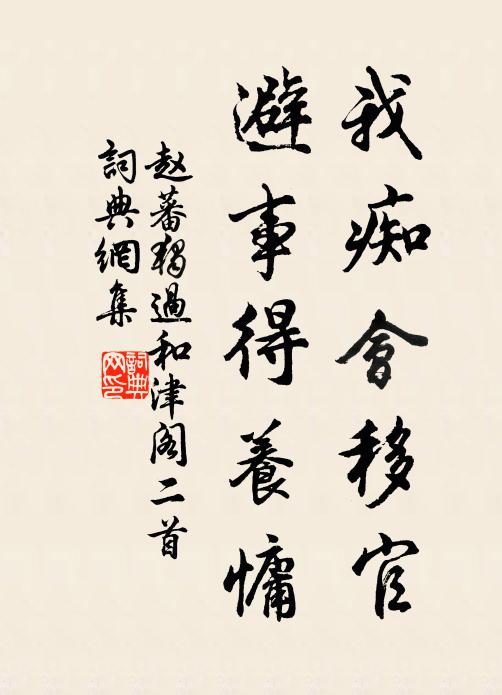 我痴會移官
避事得養慵
赵蕃獨過和津阁二首
詞典網集
詞典
网印